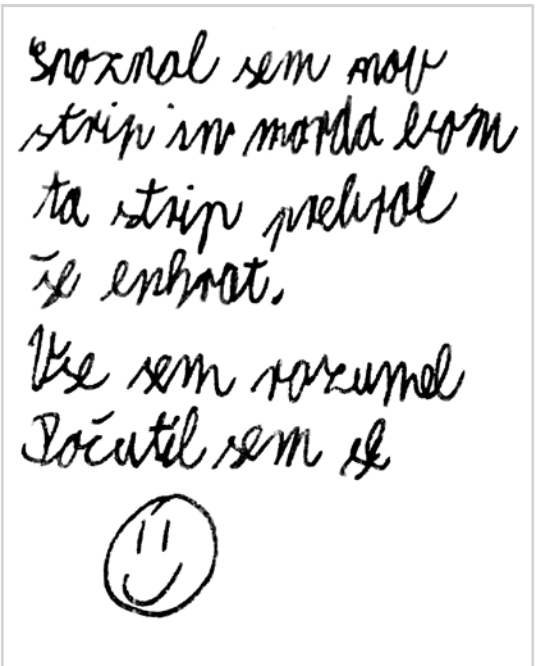 Spoznal sem nov
strip in morda bom
ta strip prebral
še enkrat.
Vse sem razumel
Počutil sem se